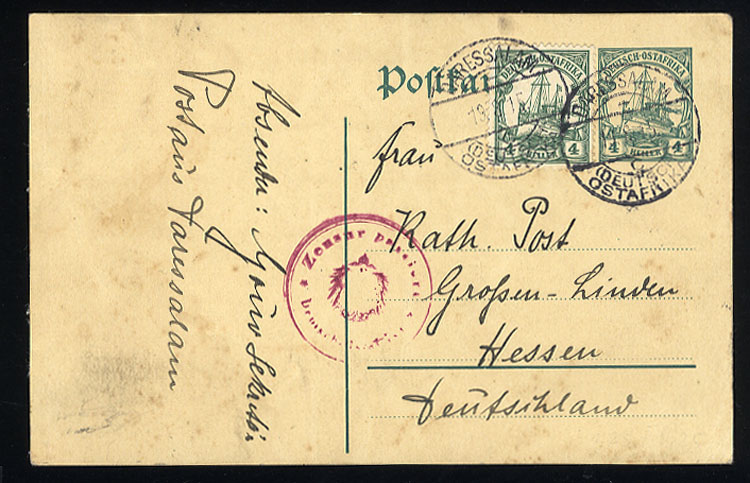 Postkar
DEUTSCH-OSTAFRIKA
4 4
HELLER
DEUTSCH-OSTAFRIKA
4 4
HELLER
DARESSALAM
19.
OSTAFRIKA
DARESSALAM
C
(DEUTSCH
OSTAFRIKA
Frau
Kath. Post
Großen-Linden
Hessen
Deutschland
Zensur passiert
Absender:
Post aus Daressalam